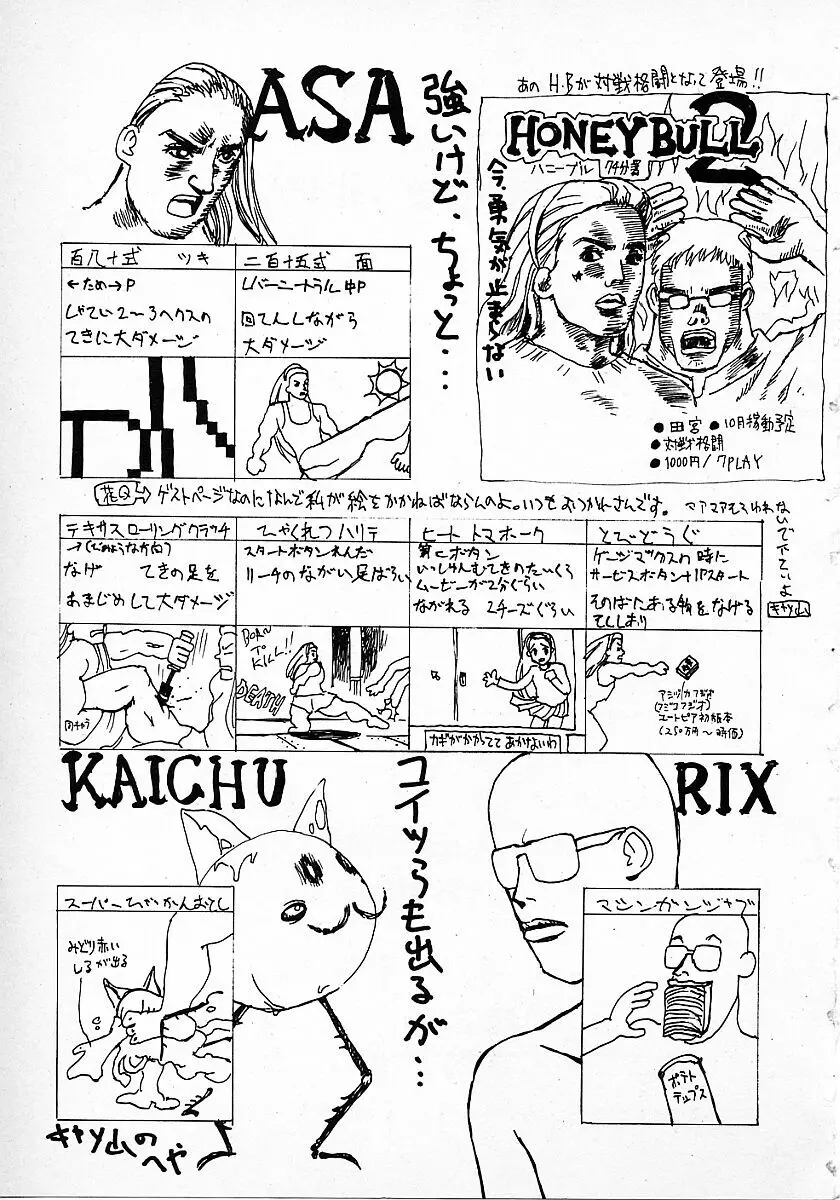 ASA
強いけど、ちょっと・・・
あの H.Bが対戦格闘となって登場!!
HONEY BULL 2
ハニーブル
今、勇気が止まらない
●田宮 ●10月稼動予定
●対戦格闘
●1000円/7PLAY
百八十式 ツキ
←ため→P
してい2〜3ヘクスの
てきに大ダメージ
二百十五式 面
レバーニートラル中P
回てんしながら
大ダメージ
ゲストページなのになんで私が絵をかかねばならんのよ。いつもおつかれさんです。
マアマアそういわれないで下さいよ
キャ山
テキサスローリングクラッチ
なげ てきの足を
おまじめして大ダメージ
ひゃくれつハリテ
スタートボタンれんだ
リーチのながい足ばらい
BORN TO KILL!!
DEATH
ヒートトマホーク
第Cボタン
いっしゅんむてきのたつくら
ムービーが2分ぐらい
ながれる 2チーズぐらい
カギがかかててあかないわ
とびどうぐ
ゲージマックスの時に
サービスボタン+1Pスタート
そのばにある物をなげる
ユートピア初版本
(250万円〜時価)
KAICHU
コイツらも出るが・・・
RIX
みどり赤い
しるが出る
マシンガンジャブ
ポテト
チップス
キャ山の
へや